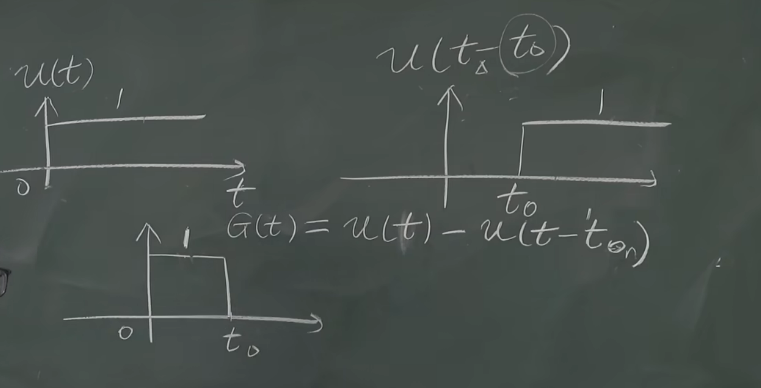 u(t)
1
0
t
u(t-t₀)
1
t₀
G(t) = u(t) - u(t-t₀)
1
0
t₀